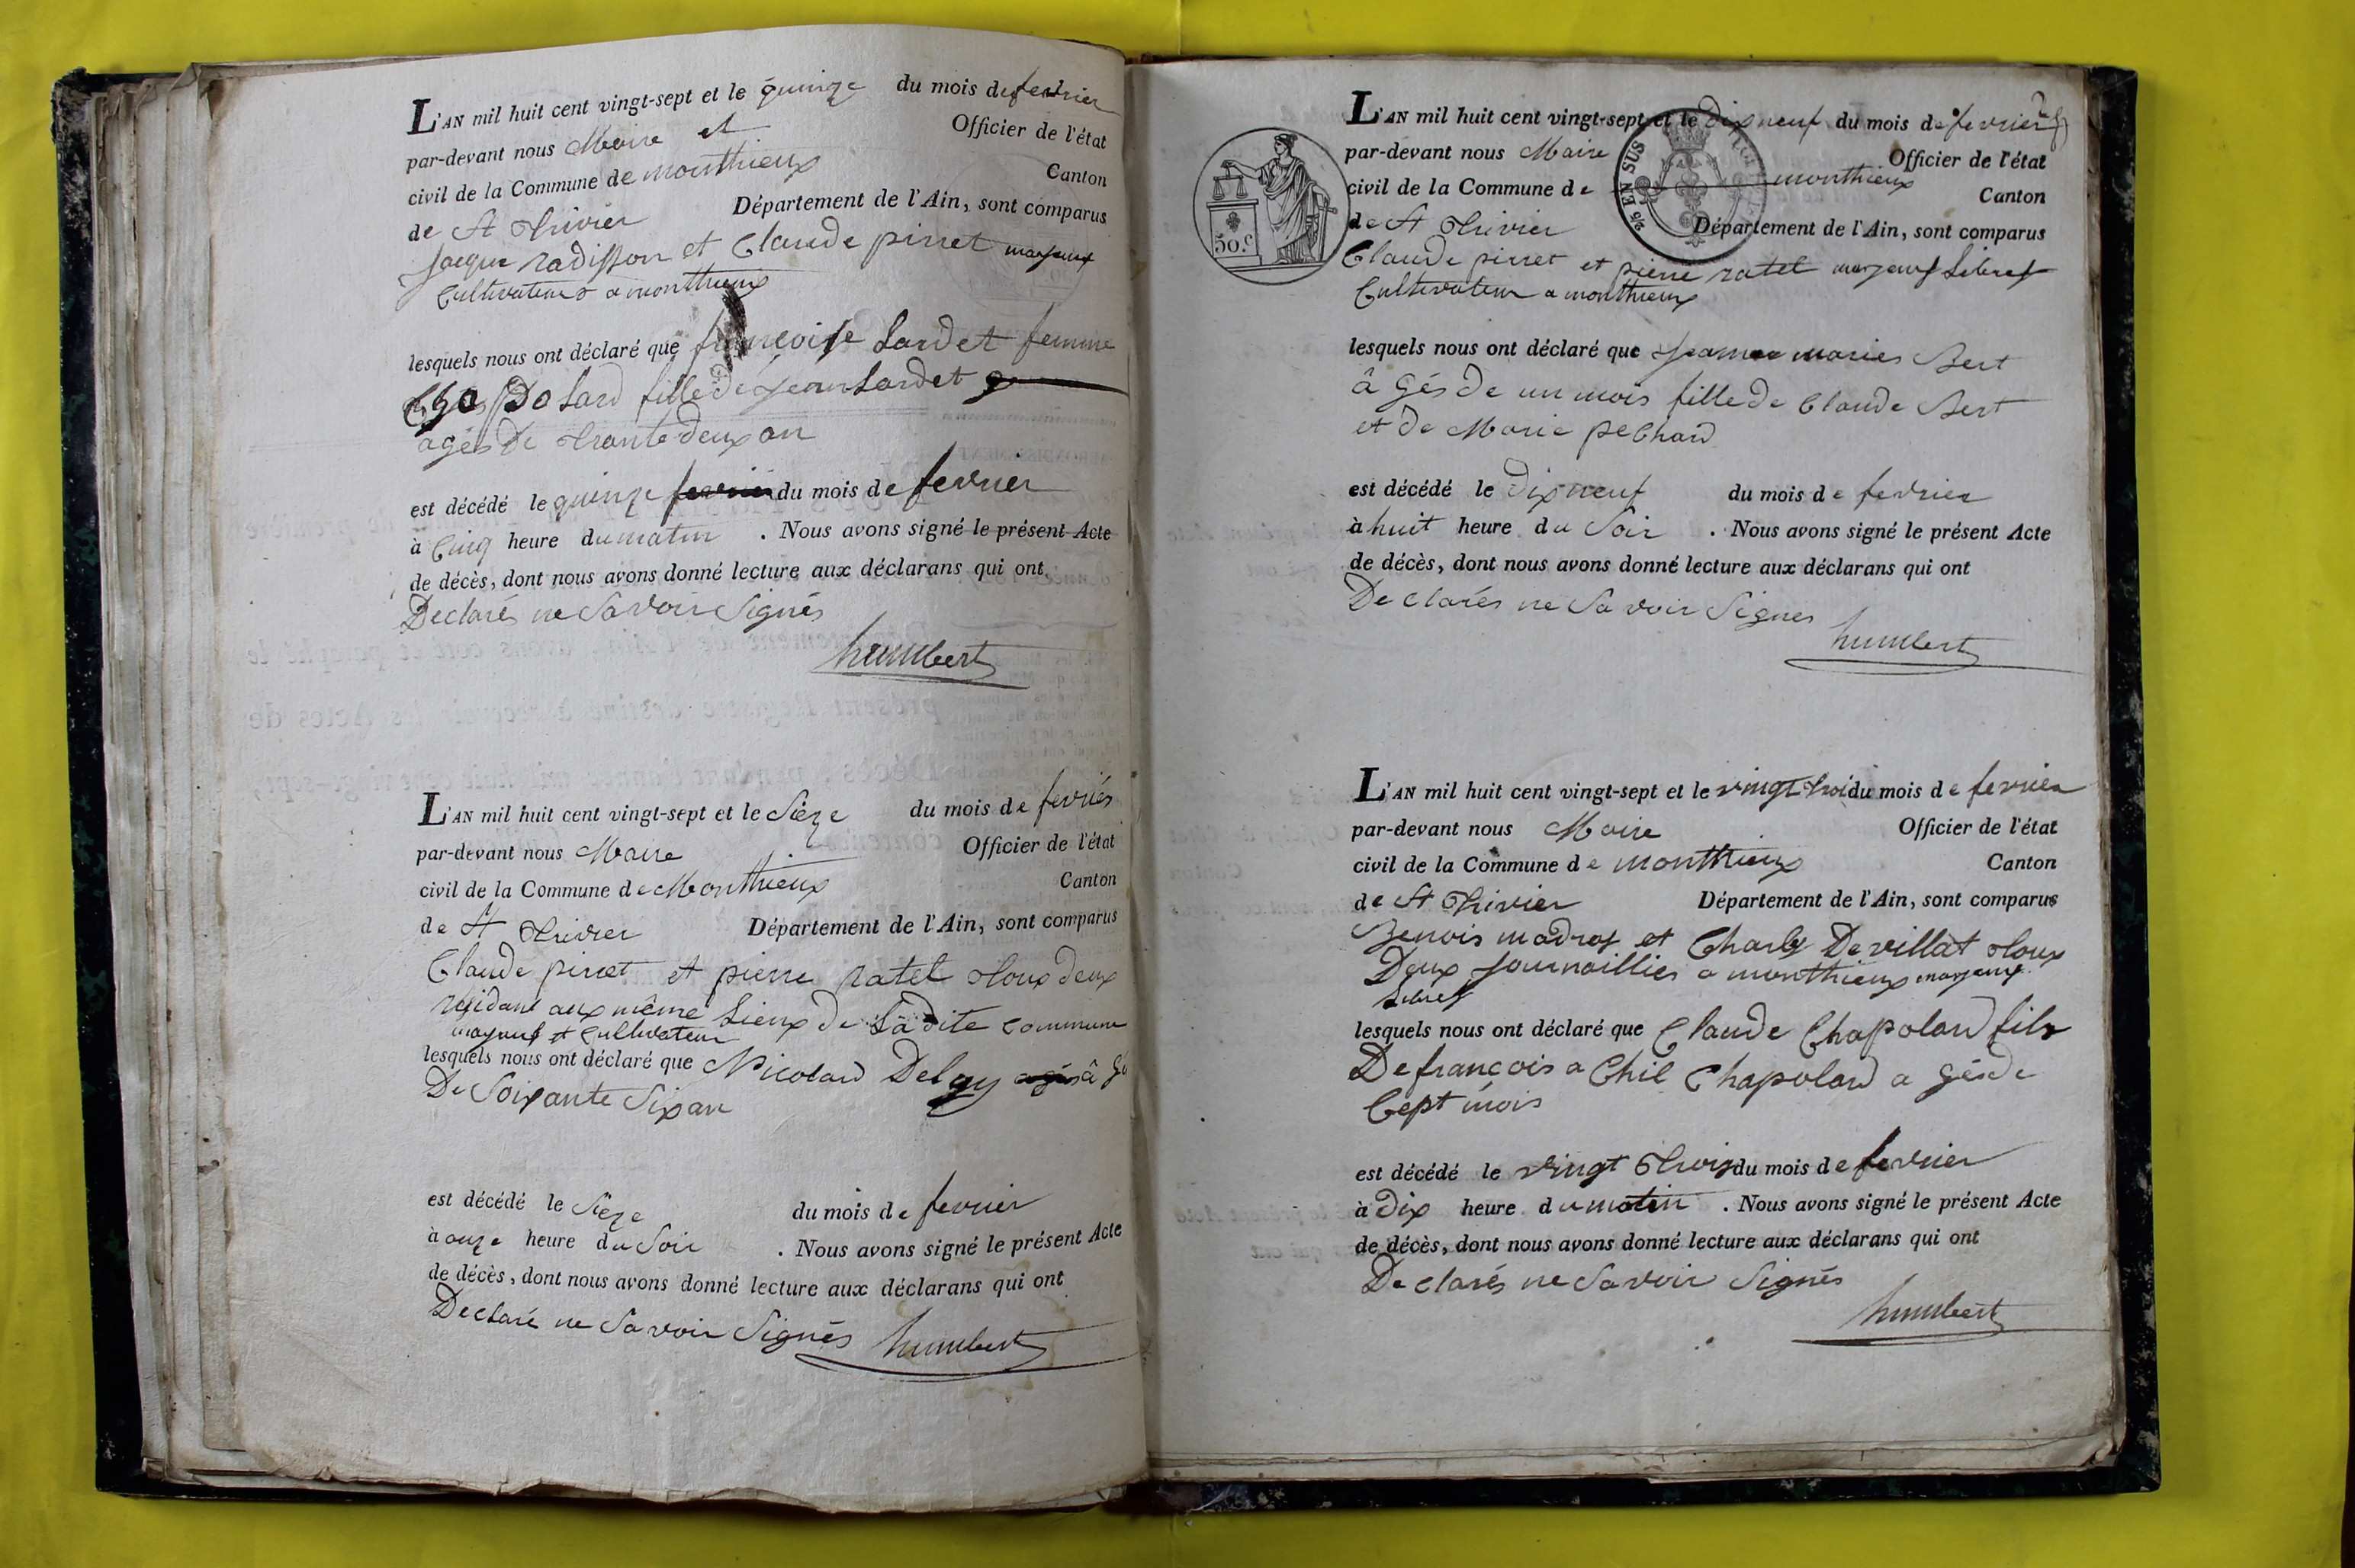 L'AN mil huit cent vingt-sept et le quinze du mois de fevrier
par-devant nous Maire et Officier de l'état
civil de la Commune de monthieux Canton
de St Trivier Département de l'Ain, sont comparus
jacque radisson et Claude pirret majeurs
Cultivateurs a monthieux
lesquels nous ont déclaré que francoise Lardet femme
Polard fille de jean Lardet
agés de trante deux an
est décédé le quinze fevrier du mois de fevrier
à Cinq heure du matin . Nous avons signé le présent Acte
de décès, dont nous avons donné lecture aux déclarans qui ont
Declarés ne Savoir Signés
humbert
L'AN mil huit cent vingt-sept et le Sieze du mois de fevriés
par-devant nous Maire Officier de l'état
civil de la Commune de Monthieux Canton
de St Trivier Département de l'Ain, sont comparus
Claude pirret et pierre ratet tous deux
residant aux même Lieux de Ladite Commune
majeurs et Cultivateur
lesquels nous ont déclaré que Nicolard Delay agés â gé
De Soixante Six an
est décédé le Sieze du mois de fevrier
à onze heure du Soir . Nous avons signé le présent Acte
de décès, dont nous avons donné lecture aux déclarans qui ont
Declaré ne Savoir Signés humbert
L'AN mil huit cent vingt-sept et le dix neuf du mois de fevrier
par-devant nous Maire Officier de l'état
civil de la Commune de monthieux Canton
de St Trivier Département de l'Ain, sont comparus
50.c
EN SUS
Claude pirret et pierre ratet majeurs Libres
Cultivateur a monthieux
lesquels nous ont déclaré que jeanne maries Bert
â gés de un mois fille de Claude Bert
et de Marie pechard
est décédé le dix neuf du mois de fevrier
à huit heure du Soir . Nous avons signé le présent Acte
de décès, dont nous avons donné lecture aux déclarans qui ont
Declarés ne Savoir Signes
humbert
L'AN mil huit cent vingt-sept et le vingt troi du mois de fevrier
par-devant nous Maire Officier de l'état
civil de la Commune de monthieux Canton
de St Trivier Département de l'Ain, sont comparus
Benois madras et Charle Devillat tous
Deux journaillier a monthieux majeurs
Libres
lesquels nous ont déclaré que Claude Chapolard fils
De françois a Chil Chapolard a gés de
Cept mois
est décédé le vingt trois du mois de fevrier
à dix heure du matin . Nous avons signé le présent Acte
de décès, dont nous avons donné lecture aux déclarans qui ont
Declarés ne Savoir Signés
humbert